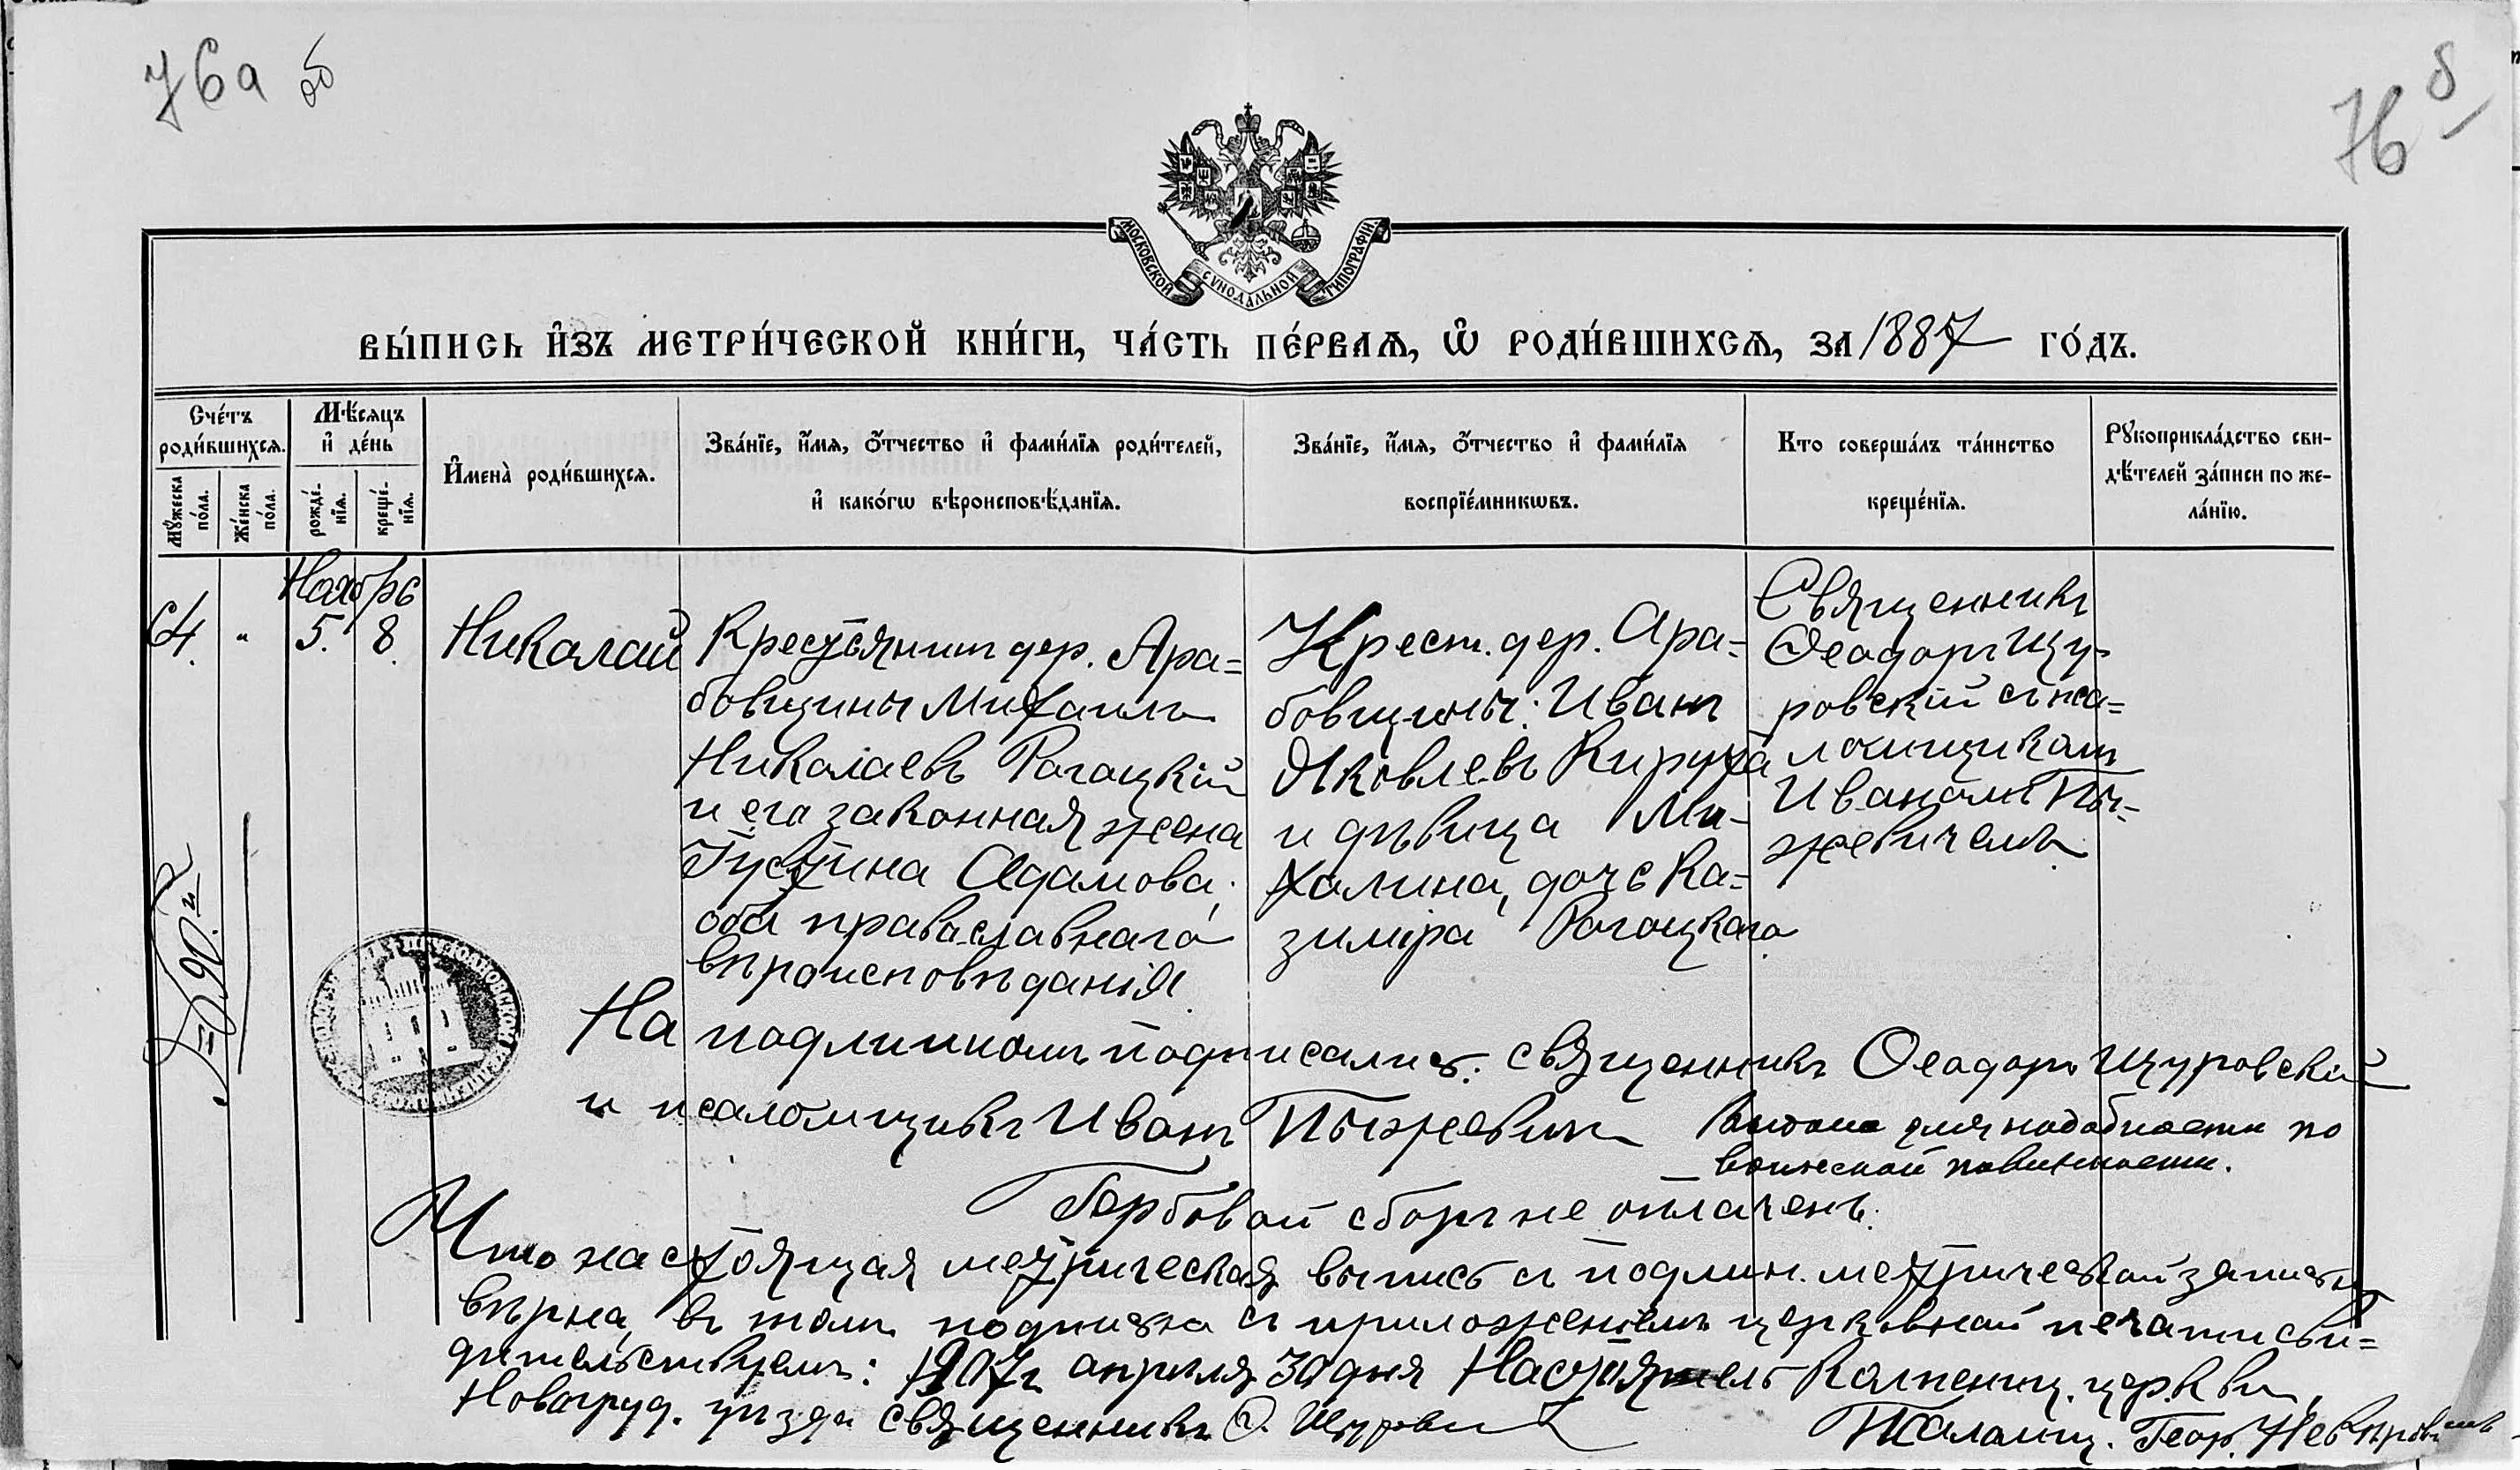 76а об
76 б
МОСКОВСКОЙ СѴНОДАЛЬНОЙ ТИПОГРАФІИ
ВЫ́ПИСЬ И҆ЗЪ МЕТРИ́ЧЕСКОЙ КНИ́ГИ, ЧА́СТЬ ПЕ́РВАѦ, Ѡ҆ РОДИ́ВШИХСѦ, ЗА 1887 ГО́ДЪ.
Сче́тъ роди́вшихсѧ.
Мꙋ́жеска по́ла.
Же́нска по́ла.
Мѣ́сѧцъ и҆ де́нь
рожде́-нїѧ.
креще́-нїѧ.
И҆мена̀ роди́вшихсѧ.
Зва́нїе, и҆́мѧ, ѻ҆́тчество и҆ фами́лїѧ роди́телей,
и҆ како́гѡ вѣроисповѣ́данїѧ.
Зва́нїе, и҆́мѧ, ѻ҆́тчество и҆ фами́лїѧ
воспрїе́мникѡвъ.
Кто соверша́лъ та́инство
креще́нїѧ.
Рꙋкоприкла́дство сви-
дѣ́телей за́писи по же-
ла́нїю.
Ноябрь
64. " 5. 8.
Николай
Крестьянинъ дер. Ара=
бовщины Михаилъ
Николаевъ Рогацкій
и его законная жена
Густина Адамова;
оба православнаго
вѣроисповѣданія.
Крест. дер. Ара=
бовщины: Иванъ
Яковлевъ Кируха
и дѣвица Ми-
халина, дочь Ка=
зиміра Рогацкаго
Священникъ
Ѳеодоръ Щу-
ровскій съ пса=
ломщикомъ
Иваномъ Пы=
жевичемъ.
На подлинномъ подписались: священникъ Ѳеодоръ Щуровскій
и псаломщикъ Иванъ Пыжевичъ
Выдана для надобности по
воинской повинности.
Гербовой сборъ не оплаченъ.
Что настоящая метрическая выпись съ подлин. метрической записью
вѣрна, въ томъ подписью съ приложеніемъ церковной печати сви=
дѣтельствуемъ: 1907 г. апрѣля 30 дня Настоятель церкви,
Новогруд. уѣзда священникъ Ѳ. Щуровскій
Псаломщ. Геор.